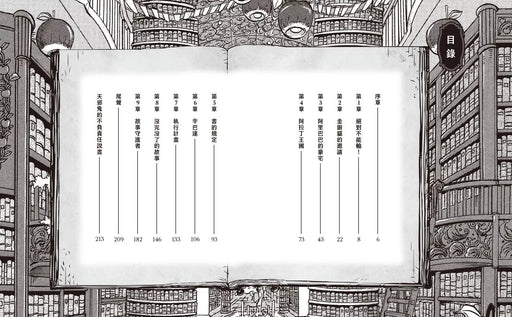 目錄
序章 6
第1章 絕對不能輸! 8
第2章 金銀貓的邀請 22
第3章 阿里巴巴的豪宅 43
第4章 阿拉丁王國 73
第5章 書的規定 93
第6章 辛巴達 106
第7章 執行計畫 133
第8章 沒完沒了的故事 146
第9章 故事守護者 182
尾聲 209
天邪鬼的不負責任說書 213